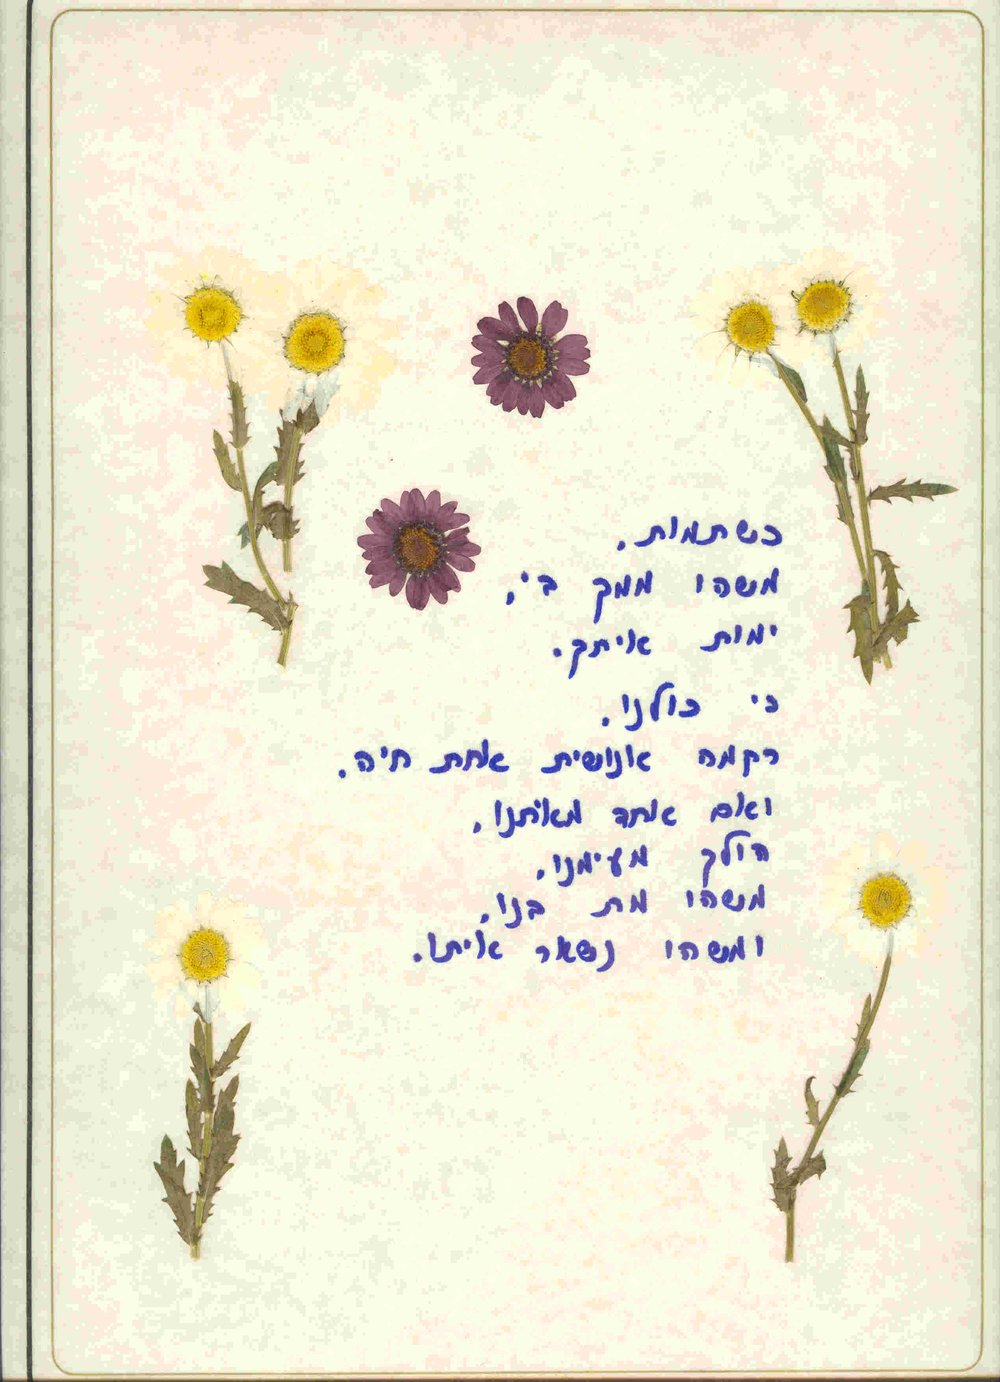 כשתמות,
משהו ממך בי,
ימות איתך.
כי כולנו,
רקמה אנושית אחת חיה.
ואם אחד מאיתנו,
הולך מעימנו,
משהו מת בנו,
ומשהו נשאר איתו.